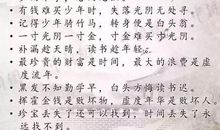 · 有钱难买少年时,失落光阴无处寻。
· 记得少年骑竹马,转身便是白头翁。
· 一寸光阴一寸金,寸金难买寸光阴。
· 补漏趁天晴,读书趁年轻。
· 最珍贵的财富是时间,最大的浪费是虚
度流年。
· 黑发不知勤学早,白首方悔读书迟。
· 挥霍金钱是败坏物,虚度年华是败坏人。
· 珍宝丢失了还可以找到,时间丢失了永
远找不到。